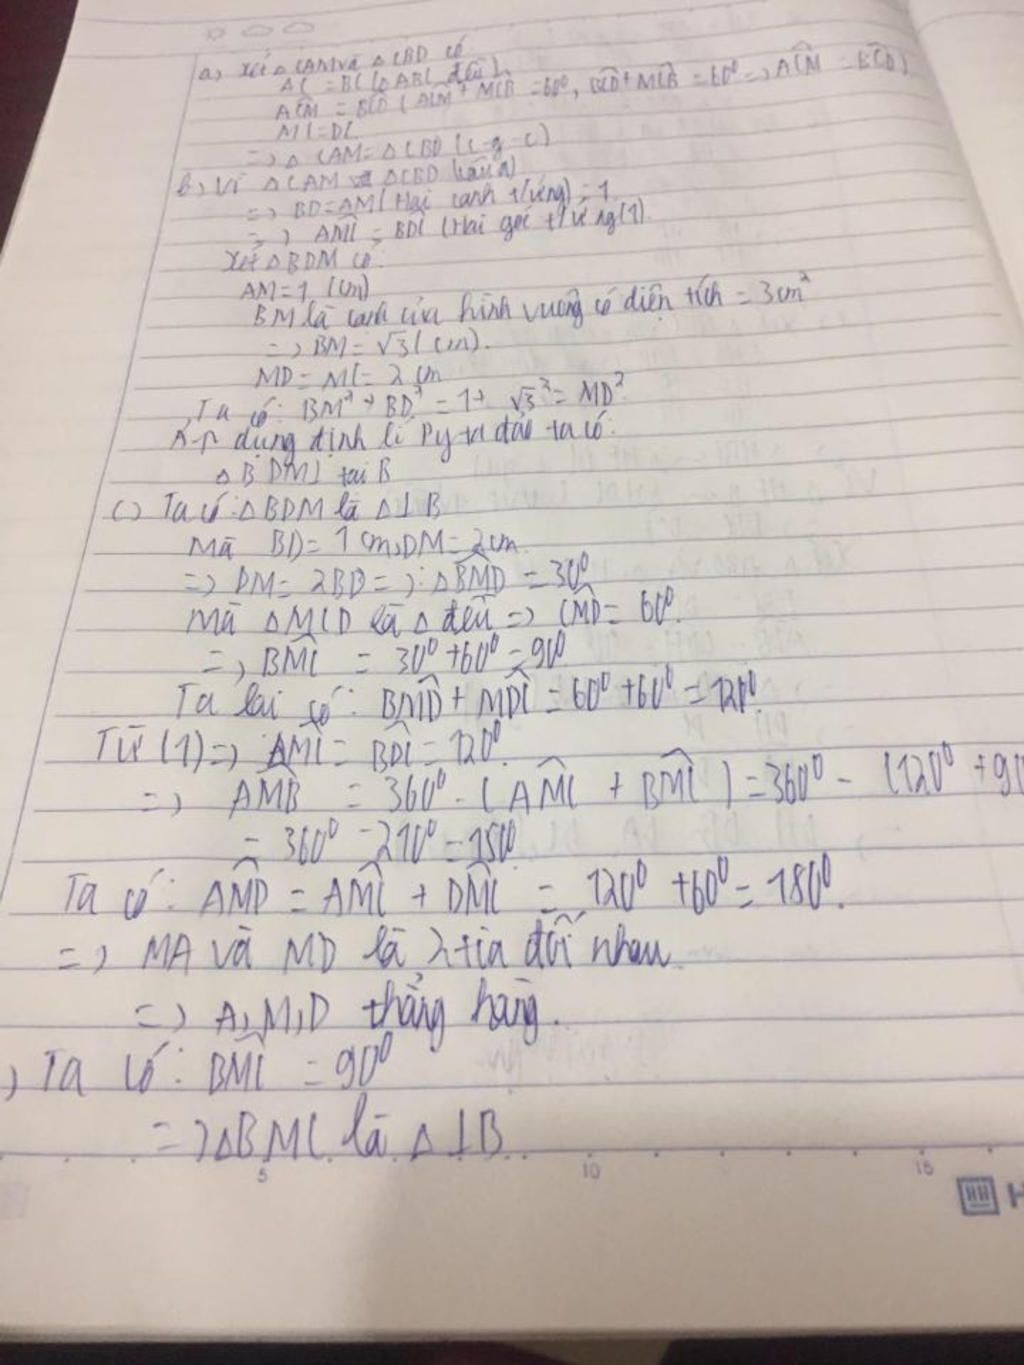 a, Xét △CAM và △CBD có
AC = BC (△ABC đều)
ACM = BCD (ACM + MCB = 60⁰, BCD + MCB = 60⁰ => ACM = BCD)
MC = DC
=> △CAM = △CBD (c-g-c)
b, Vì △CAM = △CBD (câu a)
=> BD = AM (Hai cạnh t/ứng) = 1
=> AMC = BDC (Hai góc t/ứng (1)
Xét △BDM có:
AM = 1 (cm)
BM là cạnh của hình vuông có diện tích = 3cm²
=> BM = √3 (cm).
MD = MC = 2 cm
Ta có: BM² + BD² = 1 + √3² = MD²
Áp dụng định lí Pyta đảo ta có:
△BDM⊥ tại B
c) Ta có: △BDM là △⊥B
Mà BD = 1 cm, DM = 2cm
=> DM = 2BD => : △BMD = 30⁰
Mà △MCD là △ đều => CMD = 60⁰.
=> BMC = 30⁰ + 60⁰ = 90⁰
Ta lại có: BMD + MDC = 60⁰ + 60⁰ = 120⁰.
Từ (1) => AMC = BDC = 120⁰.
=> AMB = 360⁰ - (AMC + BMC) = 360⁰ - (120⁰ + 90
= 360⁰ - 210⁰ = 150⁰
Ta có: AMD = AMC + DMC = 120⁰ + 60⁰ = 180⁰.
=> MA và MD là 2 tia đối nhau
=> A, M, D thẳng hàng.
, Ta có: BMC = 90⁰
=> △BMC là △⊥B
5 10 15
H